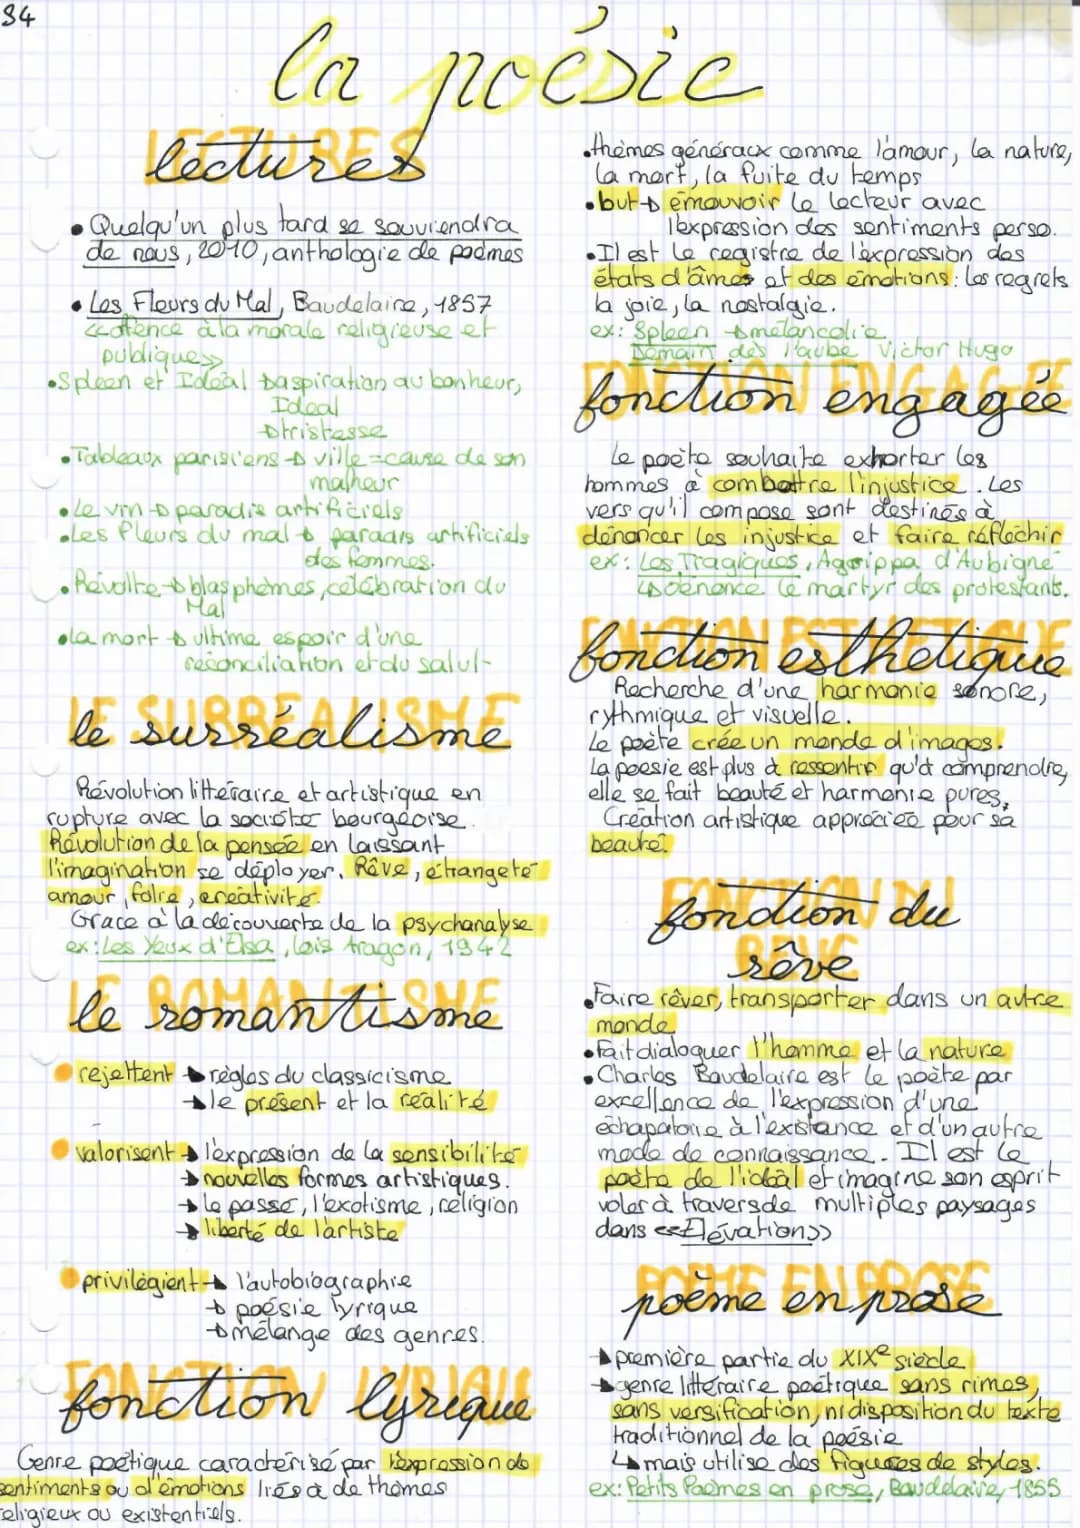 34
la poésie
LECTURES
lectures
• Quelqu'un plus tard se souviendra
de nous, 2010, anthologie de poèmes
• Les Fleurs du Mal, Baudelaire, 1857
<<offence à la morale religieuse et
publique>>
• Spleen et Idéal → aspiration au bonheur,
Idéal
→ tristesse
• Tableaux parisiens → ville = cause de son
malheur
• Le vin → paradis artificiels
• Les fleurs du mal → paradis artificiels
des femmes.
• Révolte → blasphèmes, célébration du
Mal
• La mort → ultime espoir d'une
réconciliation et du salut
LE SURRÉALISME
le surréalisme
Révolution littéraire et artistique en
rupture avec la société bourgeoise.
Révolution de la pensée en laissant
l'imagination se déployer. Rêve, étrangeté
amour, folie, créativité.
Grace à la découverte de la psychanalyse
ex: Les Yeux d'Elsa, Lois Aragon, 1942
LE ROMANTISME
le romantisme
• rejettent → règles du classicisme
→ le présent et la réalité
• valorisent → l'expression de la sensibilité
→ nouvelles formes artistiques.
→ le passé, l'exotisme, religion
→ liberté de l'artiste
• privilégient → l'autobiographie
→ poésie lyrique
→ mélange des genres.
FONCTION LYRIQUE
fonction lyrique
Genre poétique caractérisé par l'expression de
sentiments ou d'émotions liés à de thèmes
religieux ou existentiels.
• thèmes généraux comme l'amour, la nature,
la mort, la fuite du temps
• but → émouvoir le lecteur avec
l'expression des sentiments perso.
• Il est le registre de l'expression des
états d'âmes et des émotions: les regrets
la joie, la nostalgie.
ex: Spleen → mélancolie
Demain dès l'aube Victor Hugo
FONCTION ENGAGÉE
fonction engagée
Le poète souhaite exhorter les
hommes à combattre l'injustice. Les
vers qu'il compose sont destinés à
dénoncer les injustice et faire réfléchir
ex: Les Tragiques, Agrippa d'Aubigné
↳ Dénonce le martyr des protestants.
FONCTION ESTHÉTIQUE
fonction esthétique
Recherche d'une harmonie sonore,
rythmique et visuelle.
Le poète crée un monde d'images.
La poésie est plus à ressentir qu'à comprendre,
elle se fait beauté et harmonie pures.
Création artistique appréciée pour sa
beauté.
FONCTION DU
fonction du
RÊVE
rêve
• Faire rêver, transporter dans un autre
monde
• Fait dialoguer l'homme et la nature
• Charles Baudelaire est le poète par
excellence de l'expression d'une
échapatoire à l'existance et d'un autre
mode de connaissance. Il est le
poète de l'idéal et imagine son esprit
voler à travers de multiples paysages
dans <<Élévation>>
POÈME EN PROSE
poème en prose
→ première partie du XIXe siècle
→ genre littéraire poétique sans rimes,
sans versification, ni disposition du texte
traditionnel de la poésie
↳ mais utilise des figures de styles.
ex: Petits Poèmes en prose, Baudelaire, 1855